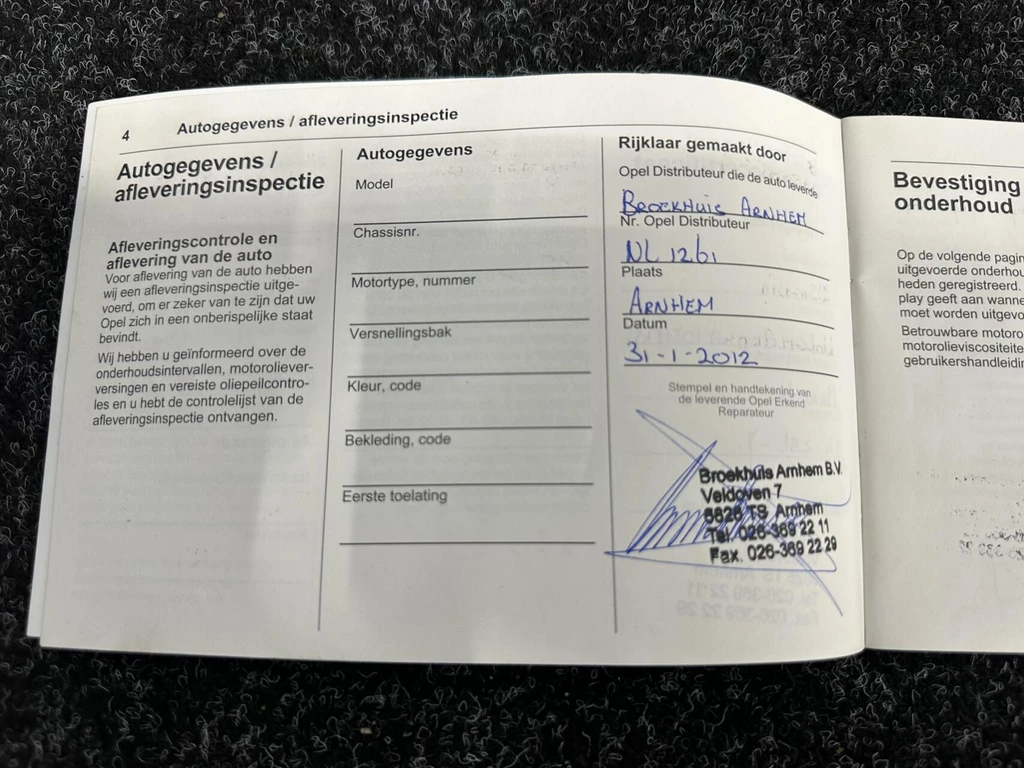 4 Autogegevens / afleveringsinspectie
Autogegevens /
afleveringsinspectie
Afleveringscontrole en
aflevering van de auto
Voor aflevering van de auto hebben
wij een afleveringsinspectie uitge-
voerd, om er zeker van te zijn dat uw
Opel zich in een onberispelijke staat
bevindt.
Wij hebben u geïnformeerd over de
onderhoudsintervallen, motoroliever-
versingen en vereiste oliepeilcontro-
les en u hebt de controlelijst van de
afleveringsinspectie ontvangen.
Autogegevens
Model
Chassisnr.
Motortype, nummer
Versnellingsbak
Kleur, code
Bekleding, code
Eerste toelating
Rijklaar gemaakt door
Opel Distributeur die de auto leverde
BROEKHUIS ARNHEM
Nr. Opel Distributeur
NL 1261
Plaats
ARNHEM
Datum
31-1-2012
Stempel en handtekening van
de leverende Opel Erkend
Reparateur
Broekhuis Arnhem B.V.
Veldoven 7
6826 TS Arnhem
Tel. 026-369 22 11
Fax. 026-369 22 29
Bevestiging
onderhoud
Op de volgende
uitgevoerde
heden geregistreerd.
play geeft aan
moet worden
Betrouwbare